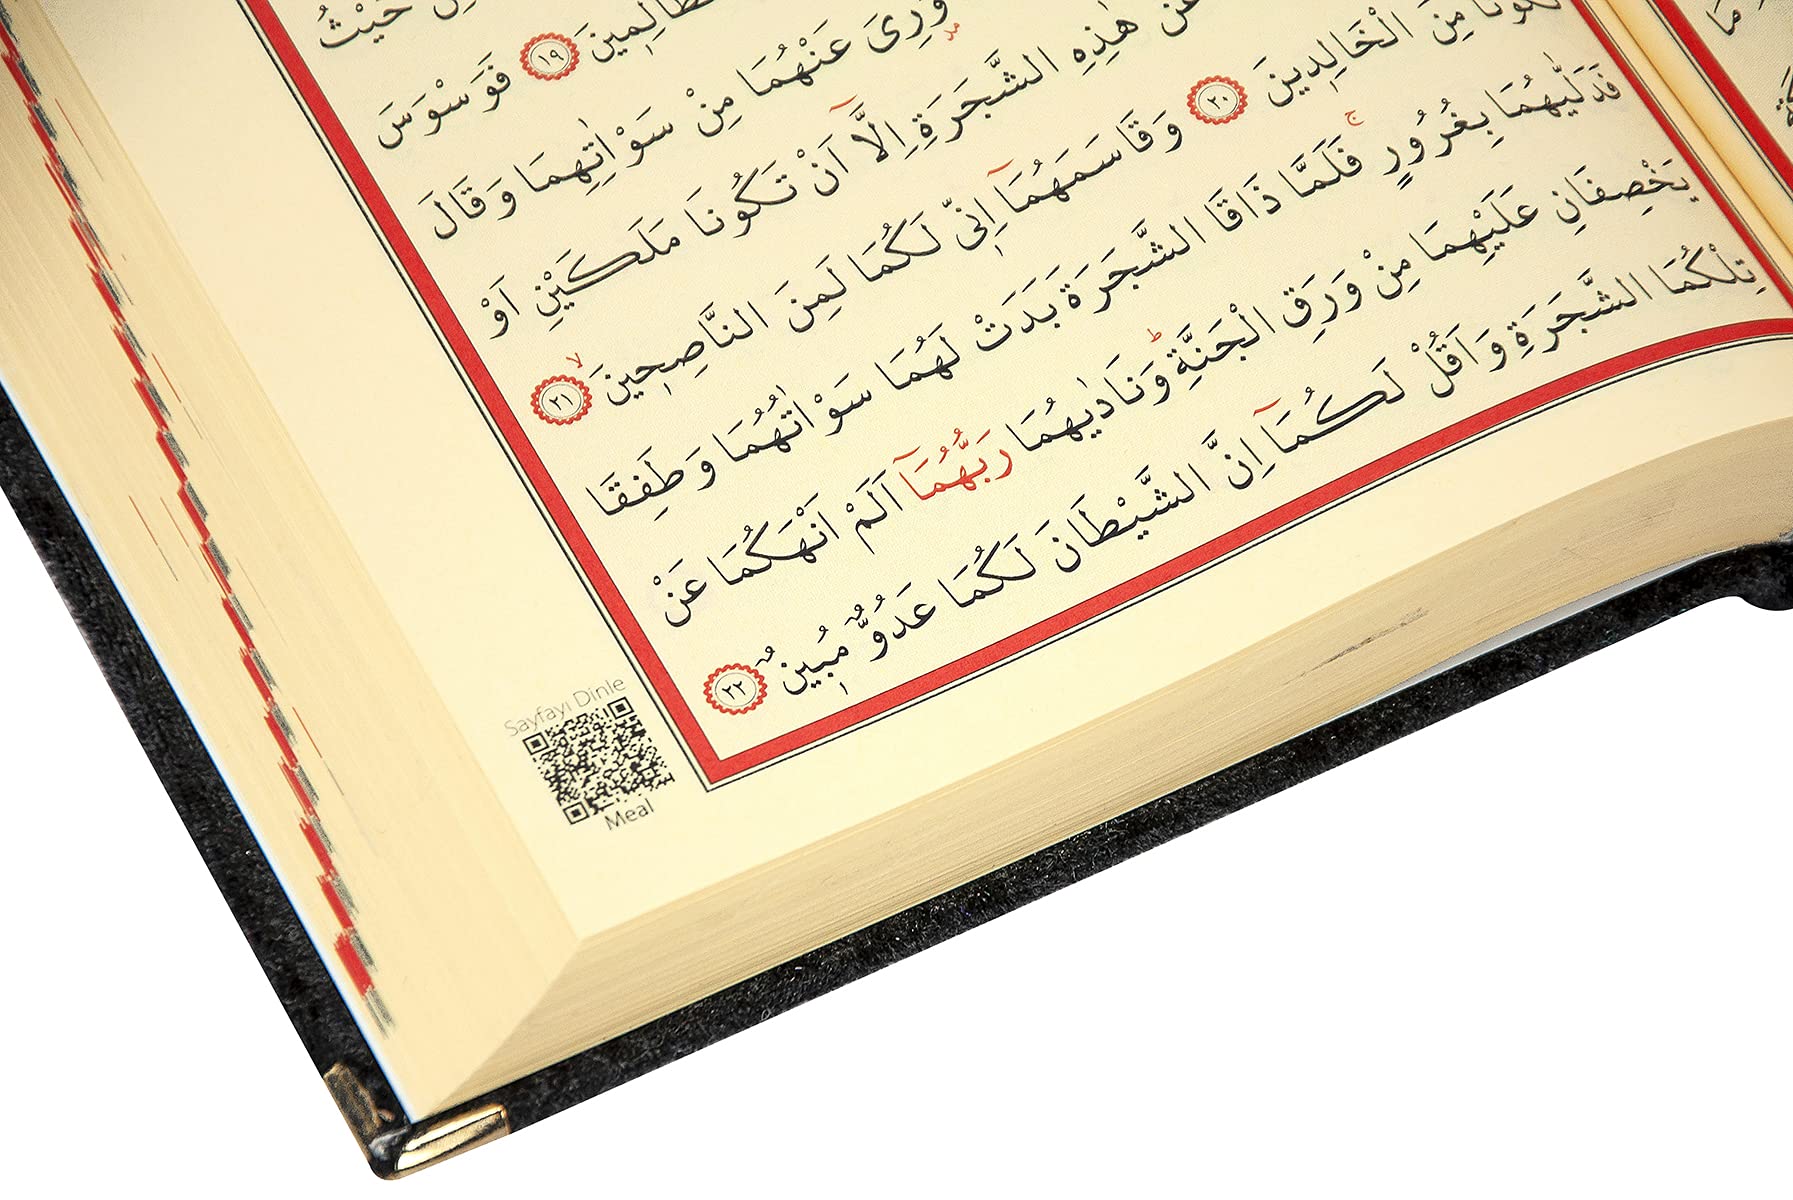 حَيْثُ
الظَّالِمِينَ ﴿١٩﴾ فَوَسْوَسَ
وُرِيَ عَنْهُمَا مِنْ سَوْاٰتِهِمَا وَقَالَ
عَنْ هٰذِهِ الشَّجَرَةِ اِلَّٓا اَنْ تَكُونَا مَلَكَيْنِ اَوْ
تَكُونَا مِنَ الْخَالِدِينَ ﴿٢٠﴾ وَقَاسَمَهُمَٓا اِنّى لَكُمَا لَمِنَ النَّاصِحِينَ ﴿٢١﴾
فَدَلّٰيهُمَا بِغُرُورٍ فَلَمَّا ذَاقَا الشَّجَرَةَ بَدَتْ لَهُمَا سَوْاٰتُهُمَا وَطَفِقَا
يَخْصِفَانِ عَلَيْهِمَا مِنْ وَرَقِ الْجَنَّةِ وَنَادٰيهُمَا رَبُّهُمَٓا اَلَمْ اَنْهَكُمَا عَنْ
تِلْكُمَا الشَّجَرَةِ وَاَقُلْ لَكُمَٓا اِنَّ الشَّيْطَانَ لَكُمَا عَدُوٌّ مُبِينٌ ﴿٢٢﴾
Sayfayı Dinle
Meal